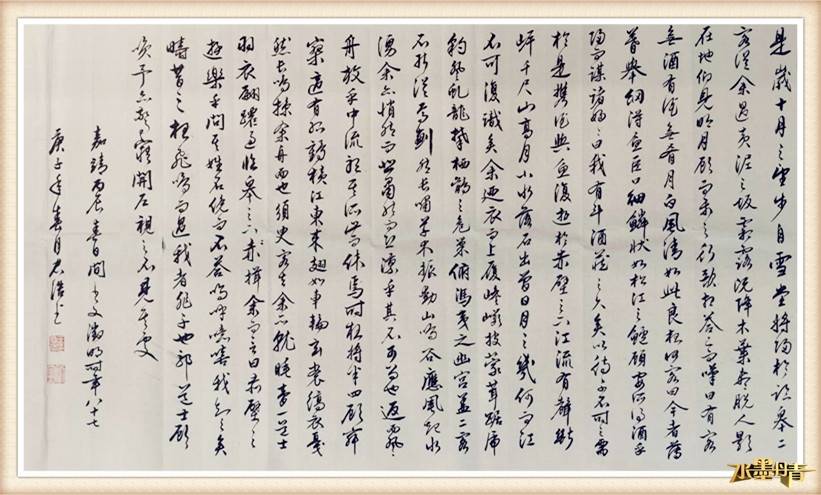 是歲十月之望步自雪堂將歸於臨皋二
客從余過黃泥之坂霜露既降木葉盡脫人影
在地仰見明月顧而樂之行歌相答已而嘆曰有客
無酒有酒無肴月白風清如此良夜何客曰今者薄
暮舉網得魚巨口細鱗狀如松江之鱸顧安所得酒乎
歸而謀諸婦婦曰我有斗酒藏之久矣以待子不時之需
於是攜酒與魚復遊於赤壁之下江流有聲斷
岸千尺山高月小水落石出曾日月之幾何而江
不可復識矣余迺衣而上履巉巖披蒙茸踞虎
豹登虬龍攀栖鶻之危巢俯馮夷之幽宮蓋二客
不能從焉劃然長嘯草木振動山鳴谷應風起水
湧余亦悄然而悲肅然而恐凜乎其不可留也返而登
舟放乎中流聽其所止而休焉時夜將半四顧寂
寥適有孤鶴橫江東來翅如車輪玄裳縞衣戛
然長鳴掠余舟而西也須臾客去余亦就睡夢一道士
羽衣翩躚過臨皋之下揖余而言曰赤壁之
遊樂乎問其姓名俛而不答嗚呼噫嘻我知之矣
疇昔之夜飛鳴而過我者非子也耶道士顧
笑予亦驚寤開戶視之不見其處
嘉靖丙辰春日 文徵明時年八十七
庚子年春月君浩書
水墨丹青